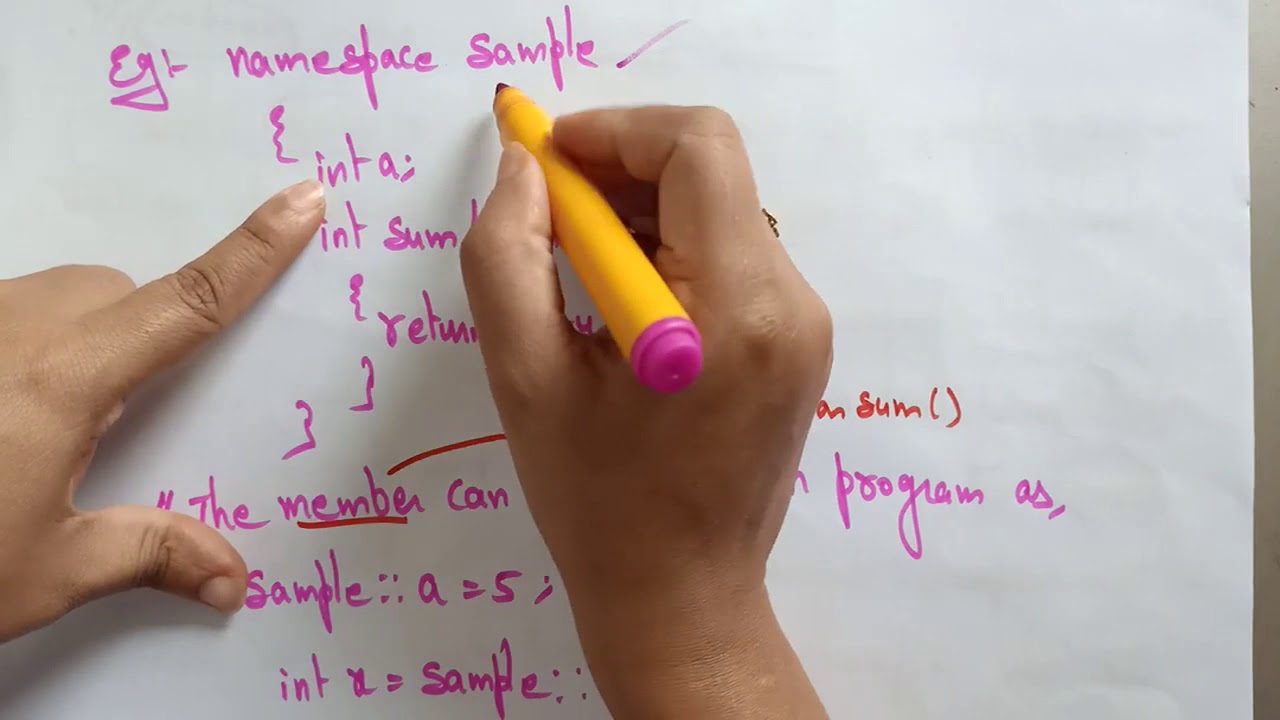 Eg:- namespace Sample
{
int a;
int sum
{
}
}
an sum()
" The member can program as,
Sample :: a = 5 ;
int x = Sample ::